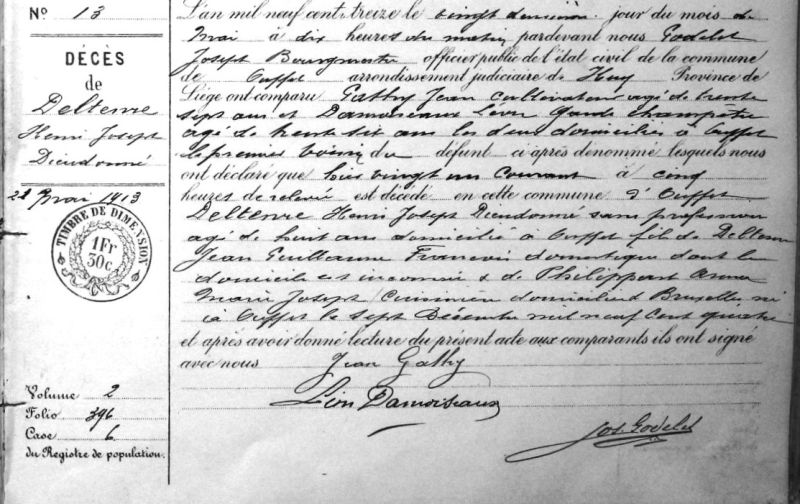 No 13
DÉCÈS
de
Deltenre
Henri Joseph
Dieudonné
21 Mai 1913
TIMBRE DE DIMENSION
1Fr
30c
Volume 2
Folio 396
Case 6
du Registre de population.
L'an mil neuf cent treize le vingt deuxième jour du mois de
Mai à dix heures du matin pardevant nous Godelet
Joseph Bourgmestre officier public de l'état civil de la commune
de Ouffet arrondissement judiciaire de Huy Province de
Liége ont comparu Gathy Jean cultivateur agé de trente
sept ans et Damoiseaux Léon Garde champêtre
agé de trente six ans les deux domiciliés à Ouffet
le premier voisin du défunt ci après dénommé lesquels nous
ont déclaré que hier vingt un courant à cinq
heures de relevée est décédé en cette commune d'Ouffet
Deltenre Henri Joseph Dieudonné sans profession
agé de huit ans domicilié à Ouffet fils de Deltenre
Jean Guillaume François domestique dont le
domicile est inconnu & de Philippart Anna
Marie Joseph Cuisinière domiciliée à Bruxelles né
à Ouffet le sept Décembre mil neuf cent quatre
et après avoir donné lecture du présent acte aux comparants ils ont signé
avec nous
Jean Gathy
Léon Damoiseaux
Jos. Godelet